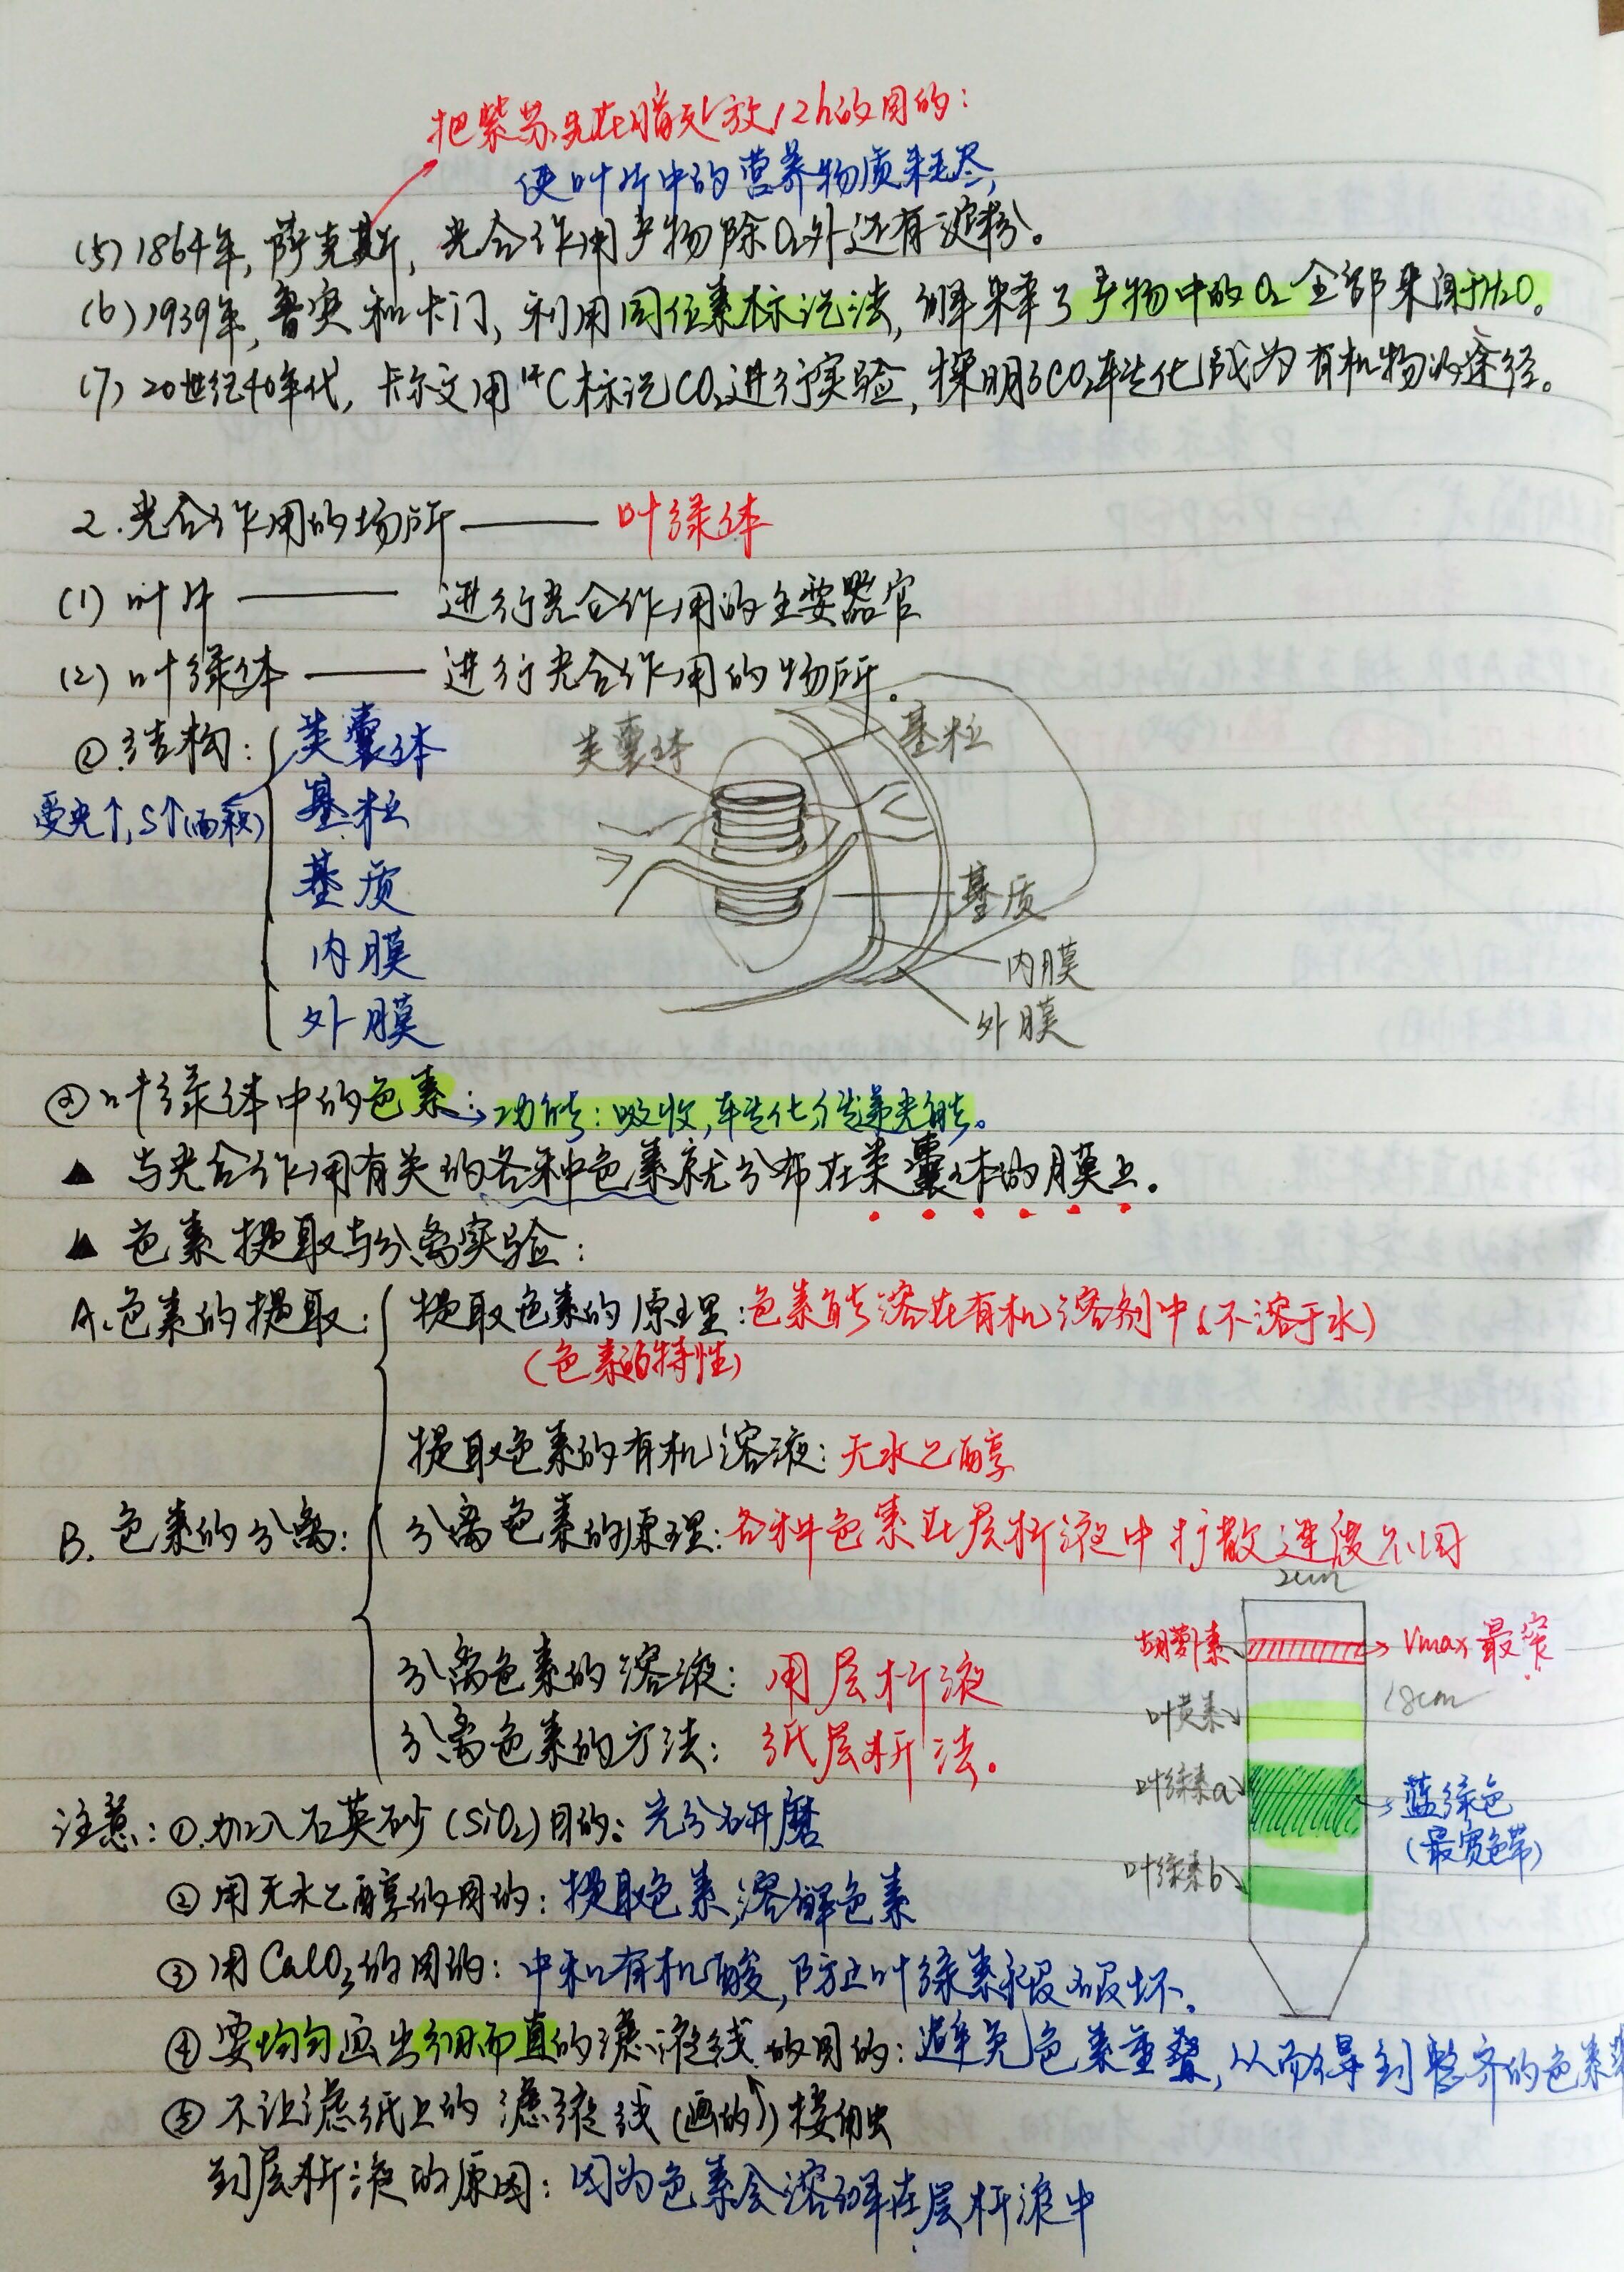 把紫苏先在暗处放12h的目的：
使叶片中的营养物质耗尽
(5) 1864年，萨克斯，光合作用产物除O₂外还有淀粉。
(6) 1939年，鲁宾和卡门，利用同位素标记法，解释了产物中的O₂全部来自于H₂O。
(7) 20世纪40年代，卡尔文用¹⁴C标记CO₂进行实验，探明了CO₂转化成为有机物的途径。
2.光合作用的场所——叶绿体
(1) 叶片——进行光合作用的主要器官
(2) 叶绿体——进行光合作用的场所。
①结构：
受光↑，S↑(面积)
类囊体
基粒
基质
内膜
外膜
类囊体
基粒
基质
内膜
外膜
②叶绿体中的色素：→功能：吸收，转化传递光能。
▲ 与光合作用有关的各种色素就分布在类囊体的膜上。
▲ 色素提取与分离实验：
A.色素的提取：提取色素的原理：色素能溶在有机溶剂中(不溶于水)
(色素的特性)
提取色素的有机溶液：无水乙醇
B.色素的分离：分离色素的原理：各种色素在层析液中扩散速度不同
分离色素的溶液：用层析液
分离色素的方法：纸层析法。
2cm
胡萝卜素
Vmax 最窄
18cm
叶黄素
叶绿素a
蓝绿色
(最宽色带)
叶绿素b
注意：①.加入石英砂(SiO₂)目的：充分研磨
②用无水乙醇的目的：提取色素，溶解色素
③用CaCO₃的目的：中和有机酸，防止叶绿素被破坏.
④要均匀画出细而直的滤液线的目的：避免色素重叠，从而得到整齐的色素带
⑤不让滤纸上的滤液线(画的↑)接触
到层析液的原因：因为色素会溶解在层析液中